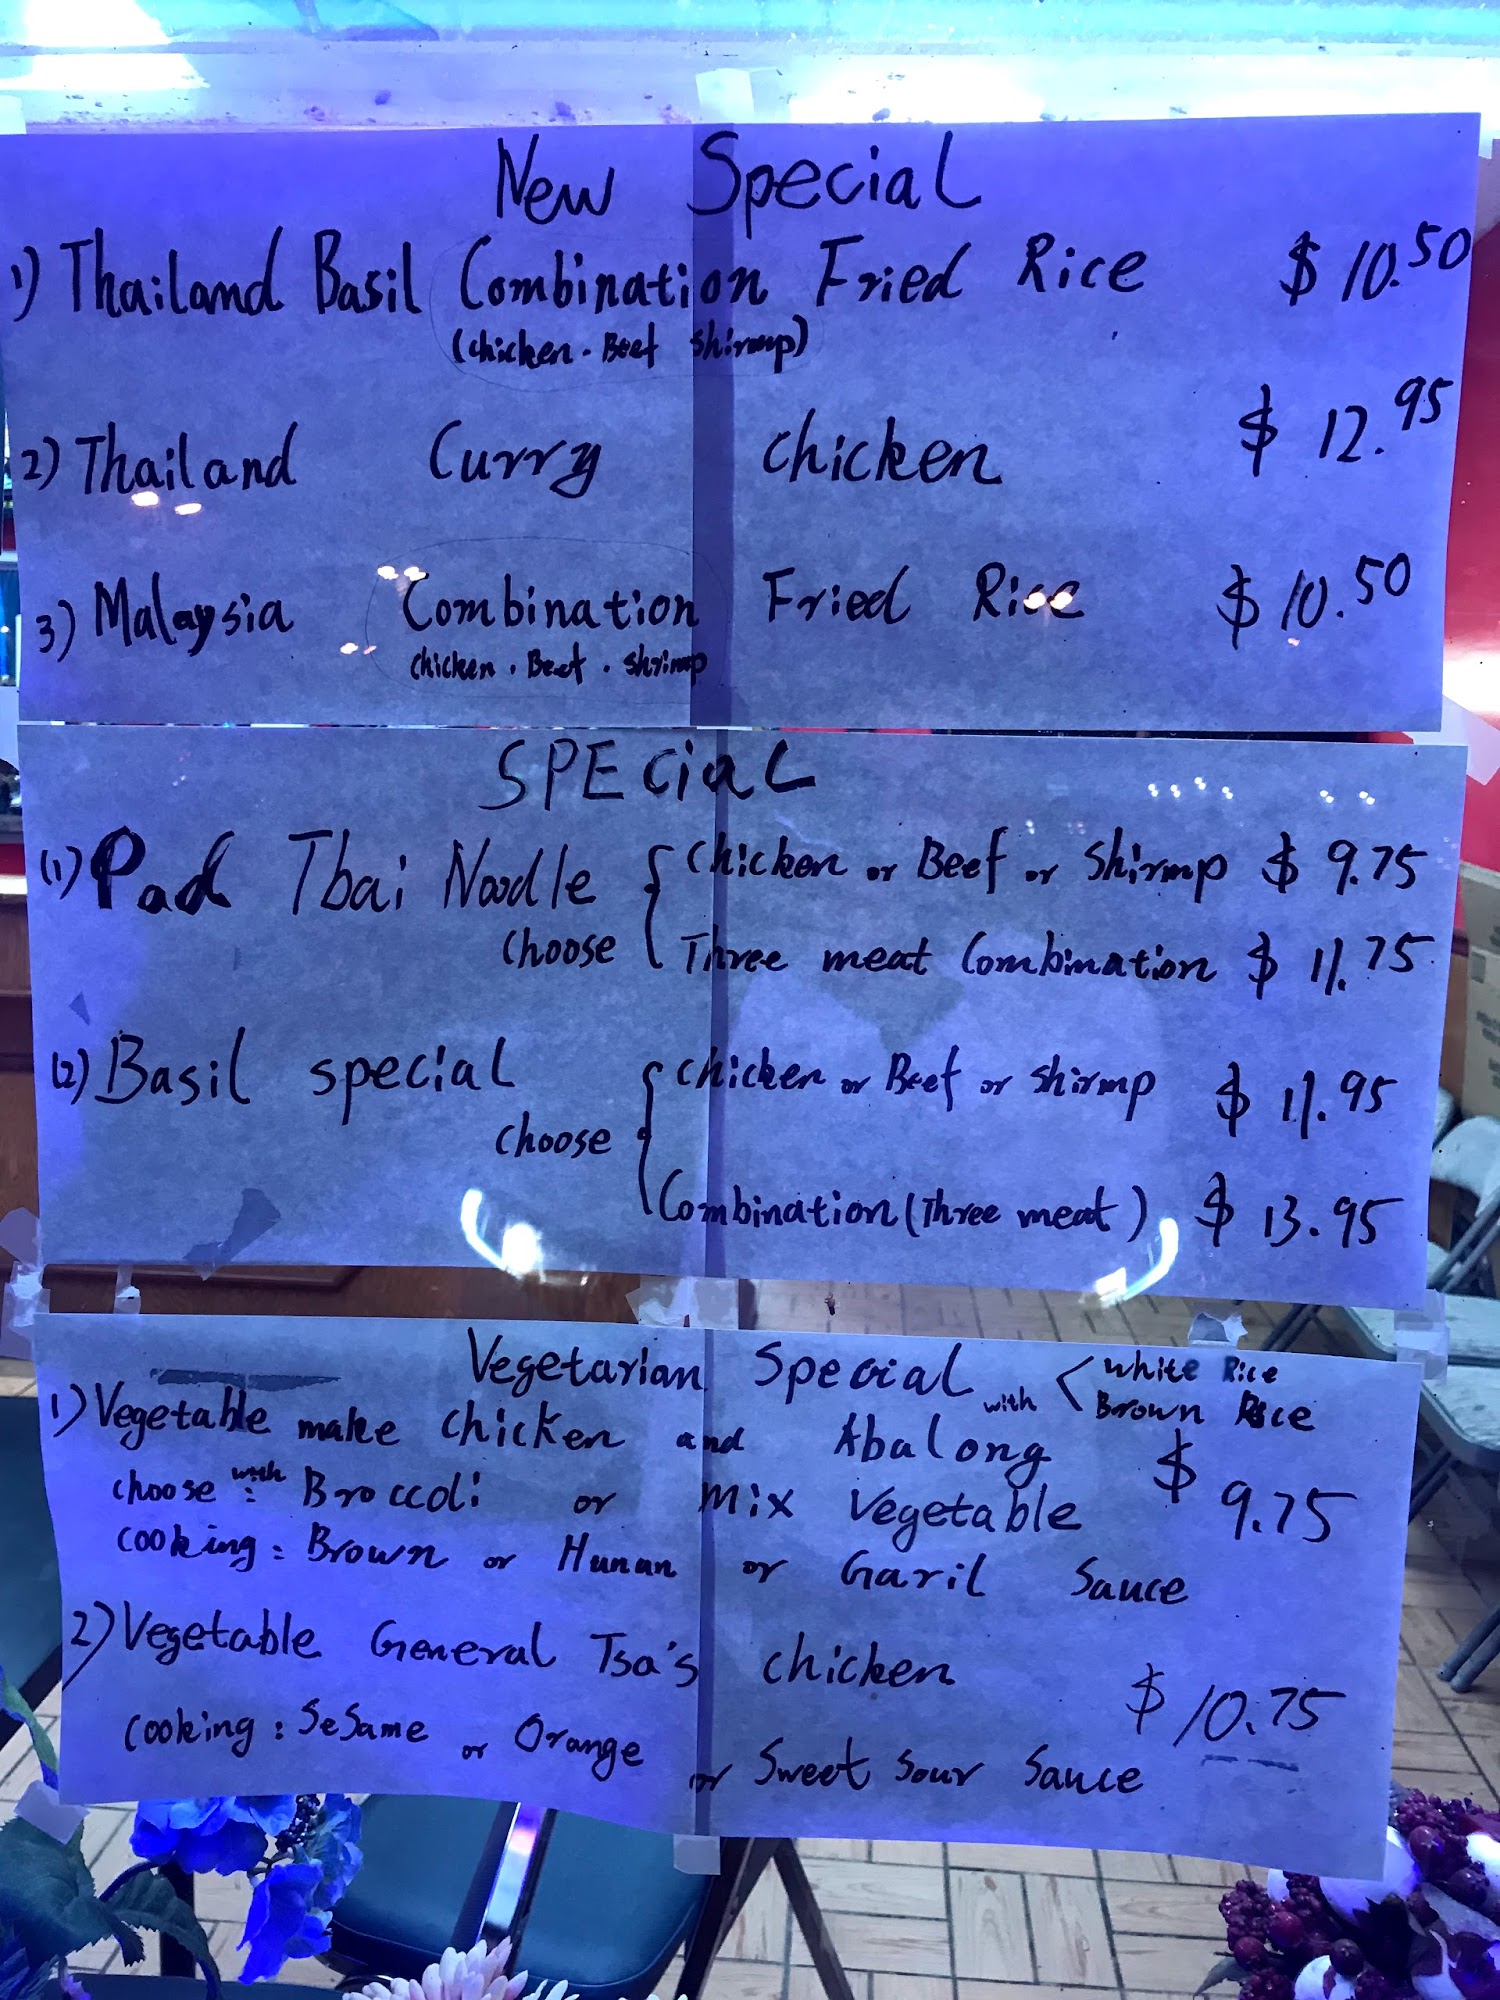 New Special
1) Thailand Basil Combination Fried Rice $10.50
(chicken . Beef shirmp)
2) Thailand Curry chicken $12.95
3) Malaysia Combination Fried Rice $10.50
chicken . Beef . shrimp
SPECiaL
(1) Pad Thai Noodle { chicken or Beef or Shirmp $ 9.75
choose Three meat Combination $ 11.75
(2) Basil special { chicken or Beef or shirmp $ 11.95
choose
Combination (Three meat) $ 13.95
Vegetarian Special with < white Rice
Brown Rice
1) Vegetable make chicken and Abalong
choose with : Broccoli or mix Vegetable $ 9.75
cooking : Brown or Hunan or Garil Sauce
2) Vegetable General Tsa's chicken
$10.75
cooking : SeSame or Orange or Sweet Sour Sauce